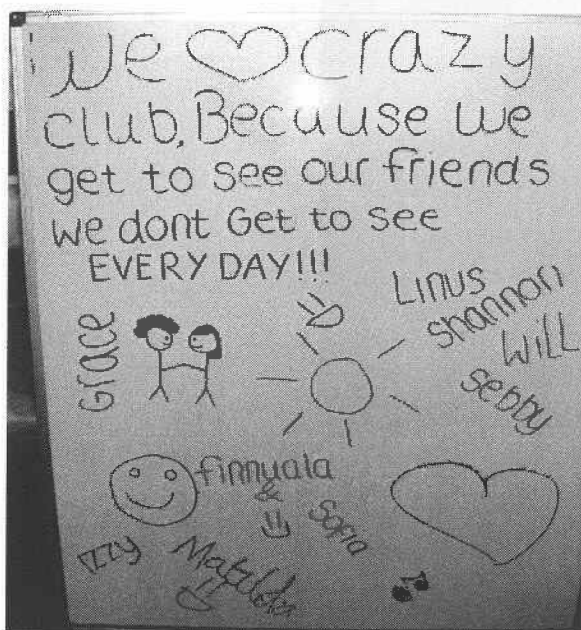 We ♡ crazy
club, Becuuse we
get to see our friends
we dont Get to see
EVERY DAY!!!
Linus
shannon
Will
sebby
Grace
finnuala
&
Sofia
Izzy
Matilda